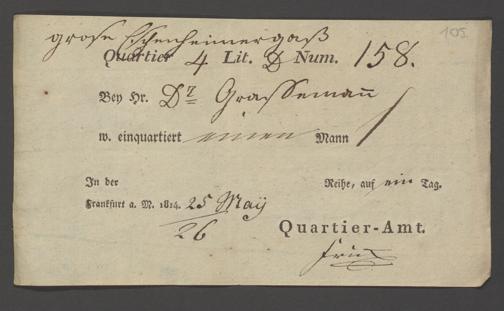 große Eschenheimergaß
105.
Quartier 4 Lit. D Num. 158.
Bey Hr. Dr Grassemann
w. einquartiert einen Mann
In der Reihe, auf ein Tag.
Frankfurt a. M. 1814. 25 May
26
Quartier-Amt.